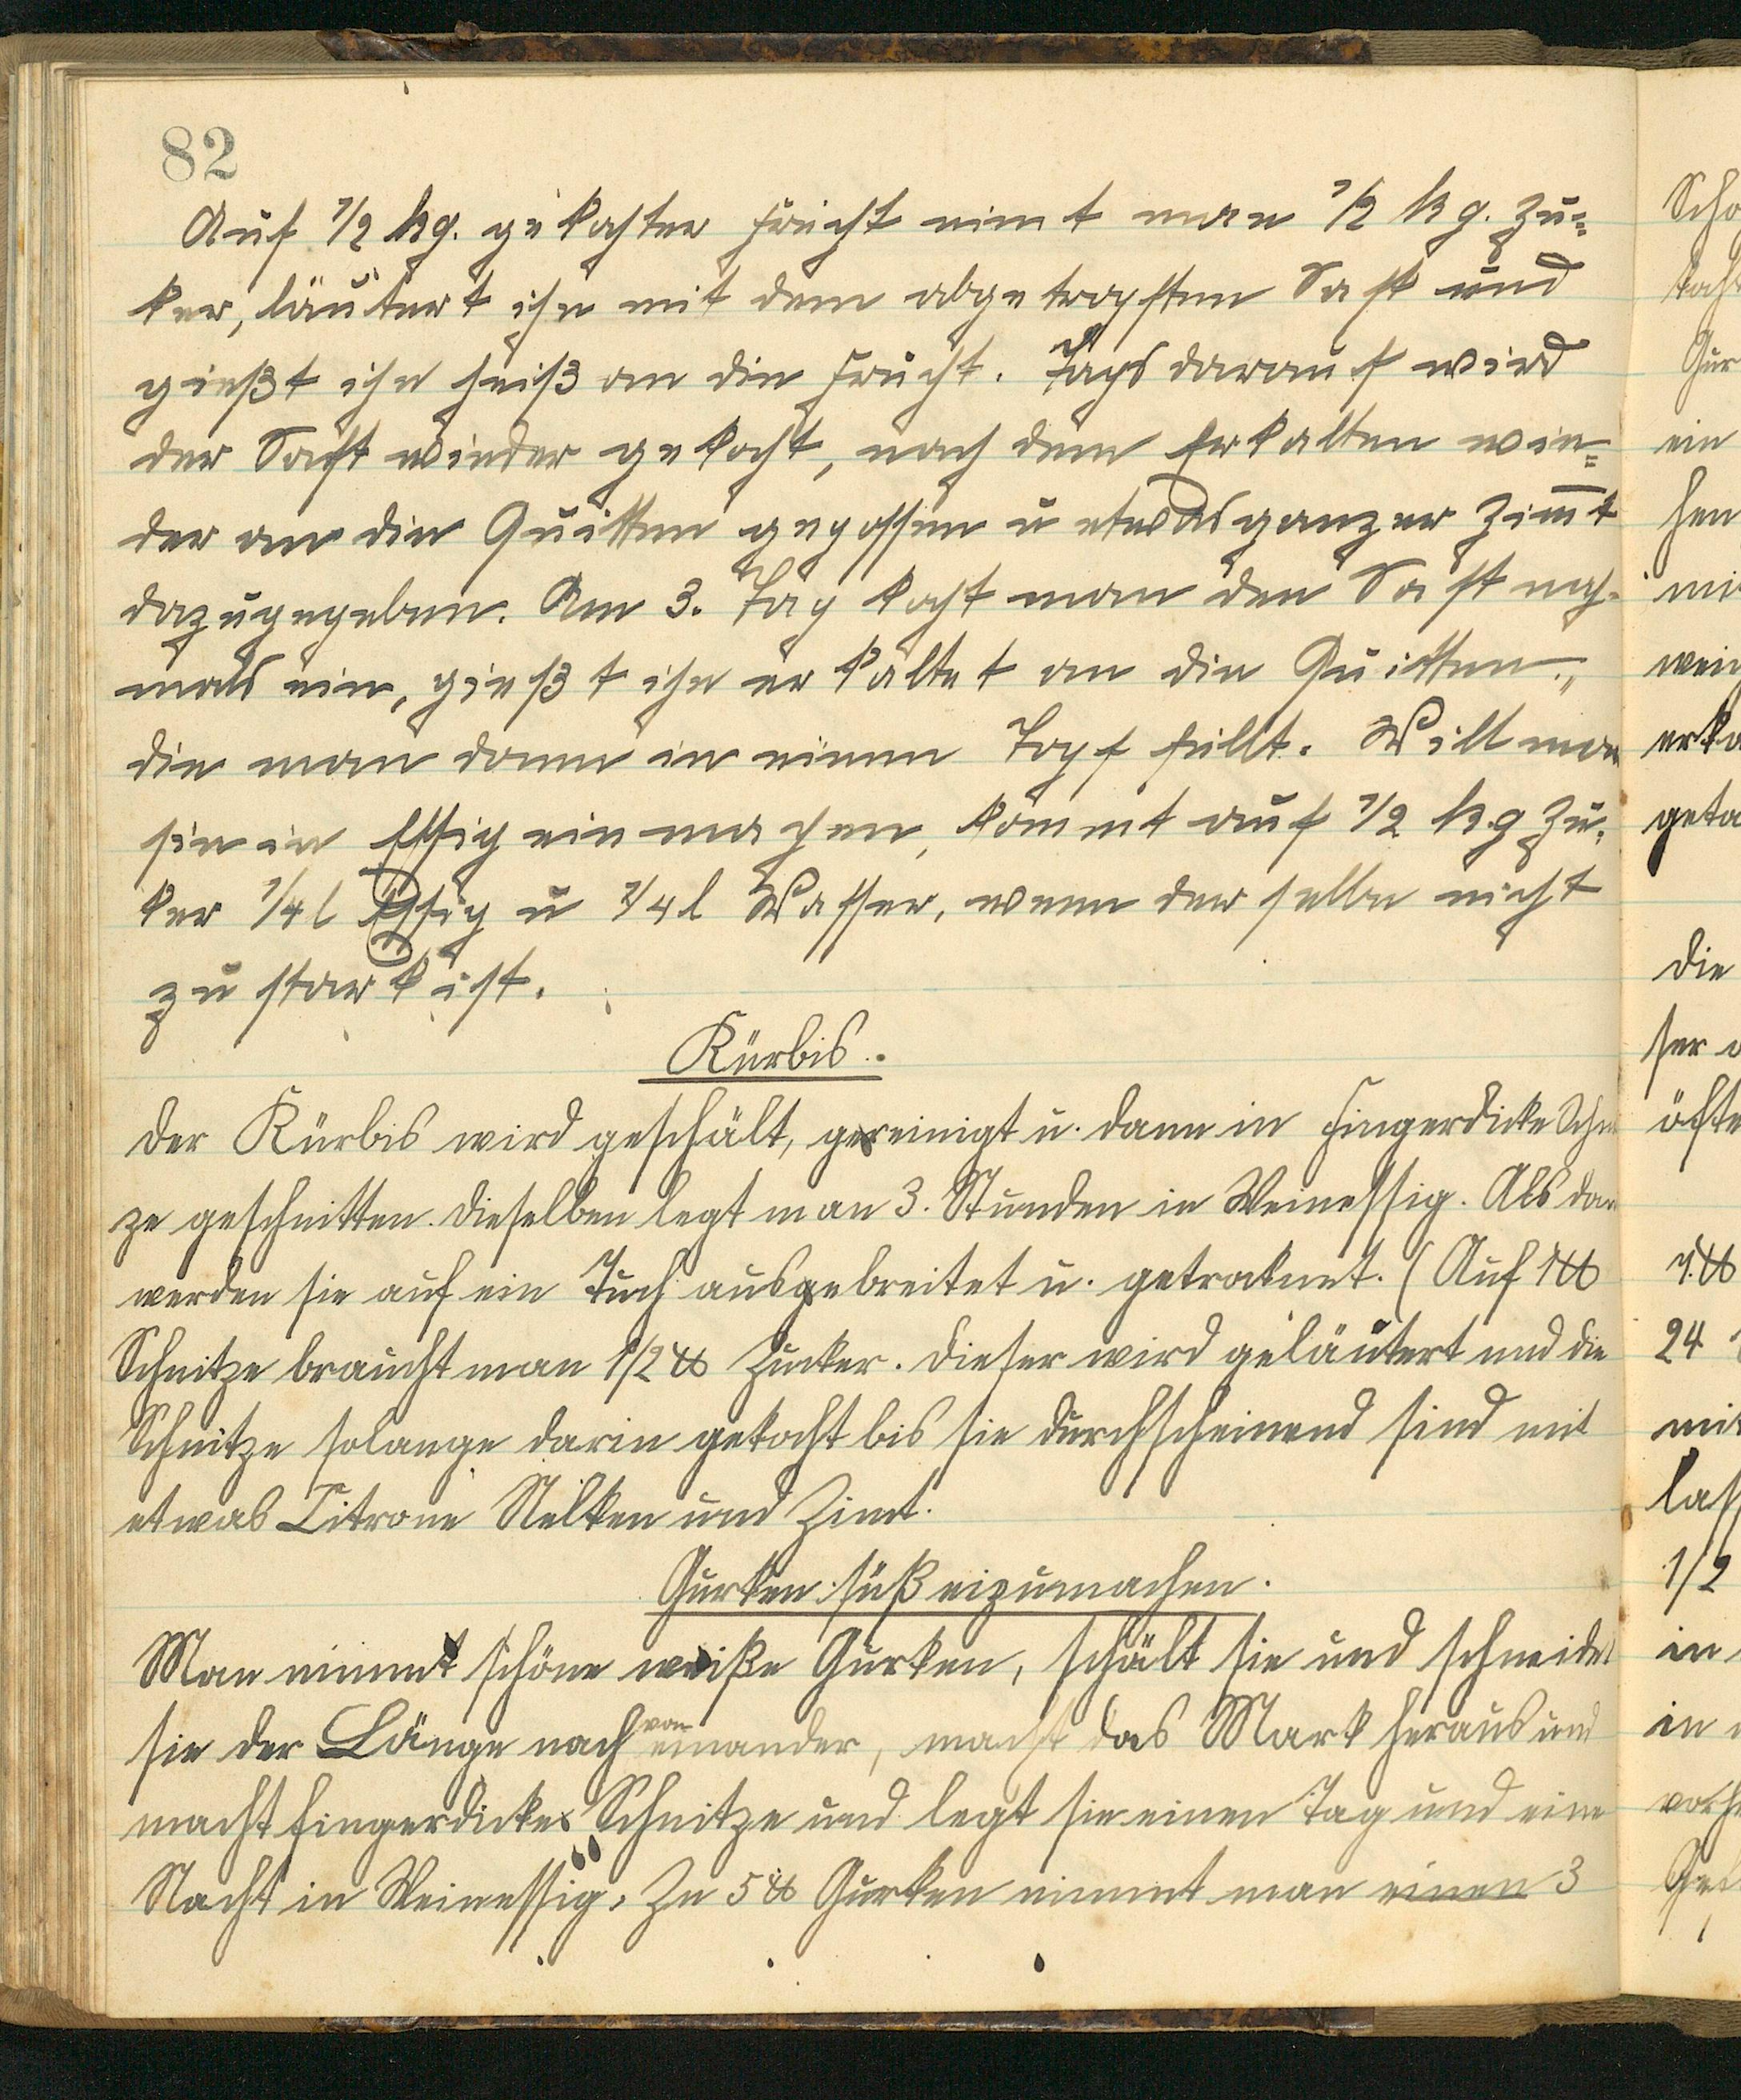 82
Auf 1/2 kg. gekochter Frucht nimt man 1/2 kg. Zu=
ker, läutert ihn mit dem abgetropften Saft und
gießt ihn heiß an die Frucht. Tags darauf wird
der Saft wieder gekocht, nach dem Erkalten wie=
der an die Quitten gegossen u etwas ganzer Zimt
dazugegeben. Am 3. Tag kocht man den Saft noch-
mals ein, gießt ihn erkaltet an die Quitten,
die man dann in einen Topf füllt. Will man
sie in Essig einmachen, kommt auf 1/2 kg Zu=
ker 1/4 l Essig u 1/4 l Wasser, wenn derselbe nicht
zu stark ist.
Kürbis.
Der Kürbis wird geschält, gereinigt u. dann in Fingerdicke Schn
ze geschnitten. Dieselben legt man 3. Stunden in Weinessig. Als dan
werden sie auf ein Tuch ausgebreitet u. getroknet. (Auf 1 ℔
Schnitze braucht man 1/2 ℔ Zucker. Dieser wird geläutert und die
Schnitze solange darin gekocht bis sie durchscheinend sind mit
etwas Citrone Nelken und Zimt.
Gurken süß eizumachen.
Man nimmt schöne weiße Gurken, schält sie und schneidet
sie der Länge nach von einander, macht das Mark heraus und
macht fingerdicke Schnitze und legt sie einen Tag und eine
Nacht in Weinessig. Zu 5 ℔ Gurken nimmt man einen 3
Scho
koch
Gur
ein
hen
mi
wein
erka
geta
die
ser
öfte
1. ℔
24
mit
lass
1/2
in
in
vorhe